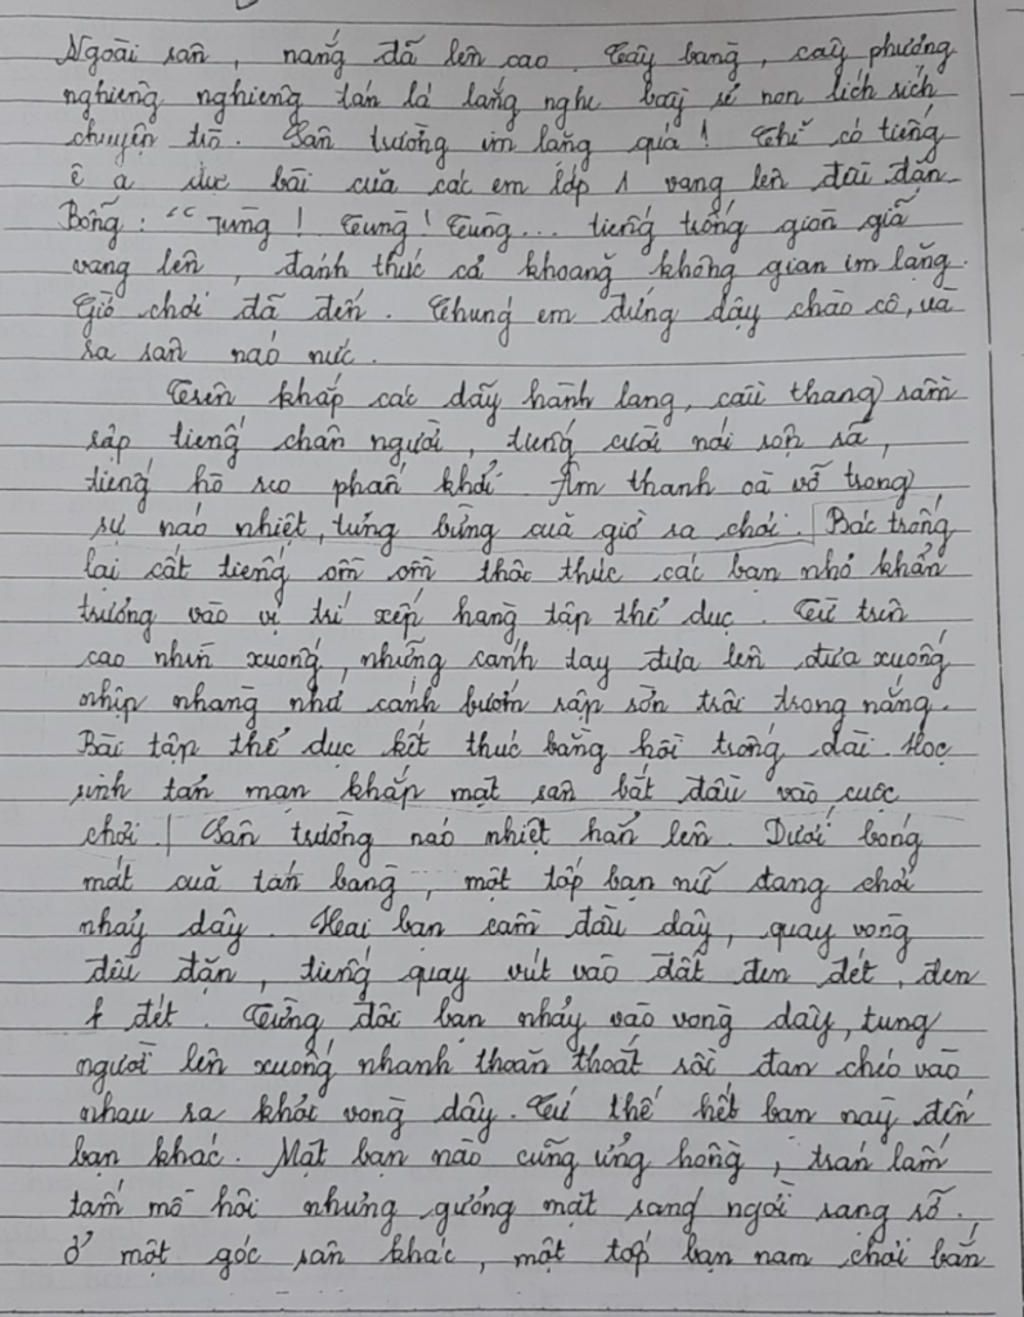 Ngoài sân, nắng đã lên cao. Cây bàng, cây phượng
nghiêng nghiêng tán lá lắng nghe bầy sẻ non lích rích
chuyện trò. Sân trường im lặng quá! Chỉ có tiếng
ê a đọc bài của các em lớp 1 vang lên đều đặn
Bỗng: "Tùng! Tùng! Tùng... tiếng trống giòn giã
vang lên, đánh thức cả khoảng không gian im lặng.
Giờ chơi đã đến. Chúng em đứng dậy chào cô, và
ra sân náo nức.
Trên khắp các dãy hành lang, cầu thang rầm
rập tiếng chân người, tiếng cười nói rộn rã,
tiếng hò reo phấn khởi. Âm thanh oà vỡ trong
sự náo nhiệt, tưng bừng của giờ ra chơi. Bác trống
lại cất tiếng ồm ồm thôi thúc các bạn nhỏ khẩn
trương vào vị trí xếp hàng tập thể dục. Từ trên
cao nhìn xuống, những cánh tay đưa lên đưa xuống
nhịp nhàng như cánh bướm rập rờn trôi trong nắng.
Bài tập thể dục kết thúc bằng hồi trống dài. Học
sinh tản mạn khắp mặt sân bắt đầu vào cuộc
chơi. Sân trường náo nhiệt hẳn lên. Dưới bóng
mát của tán bàng, một tốp bạn nữ đang chơi
nhảy dây. Hai bạn cầm đầu dây, quay vòng
đều đặn, tiếng quay vút vào đất đen đét, đen
đét. Từng đôi bạn nhảy vào vòng dây, tung
người lên xuống nhanh thoăn thoắt rồi đan chéo vào
nhau ra khỏi vòng dây. Cứ thế hết bạn này đến
bạn khác. Mặt bạn nào cũng ửng hồng, trán lấm
tấm mồ hôi nhưng gương mặt sáng ngời rạng rỡ.
Ở một góc sân khác, một tốp bạn nam chơi bắn